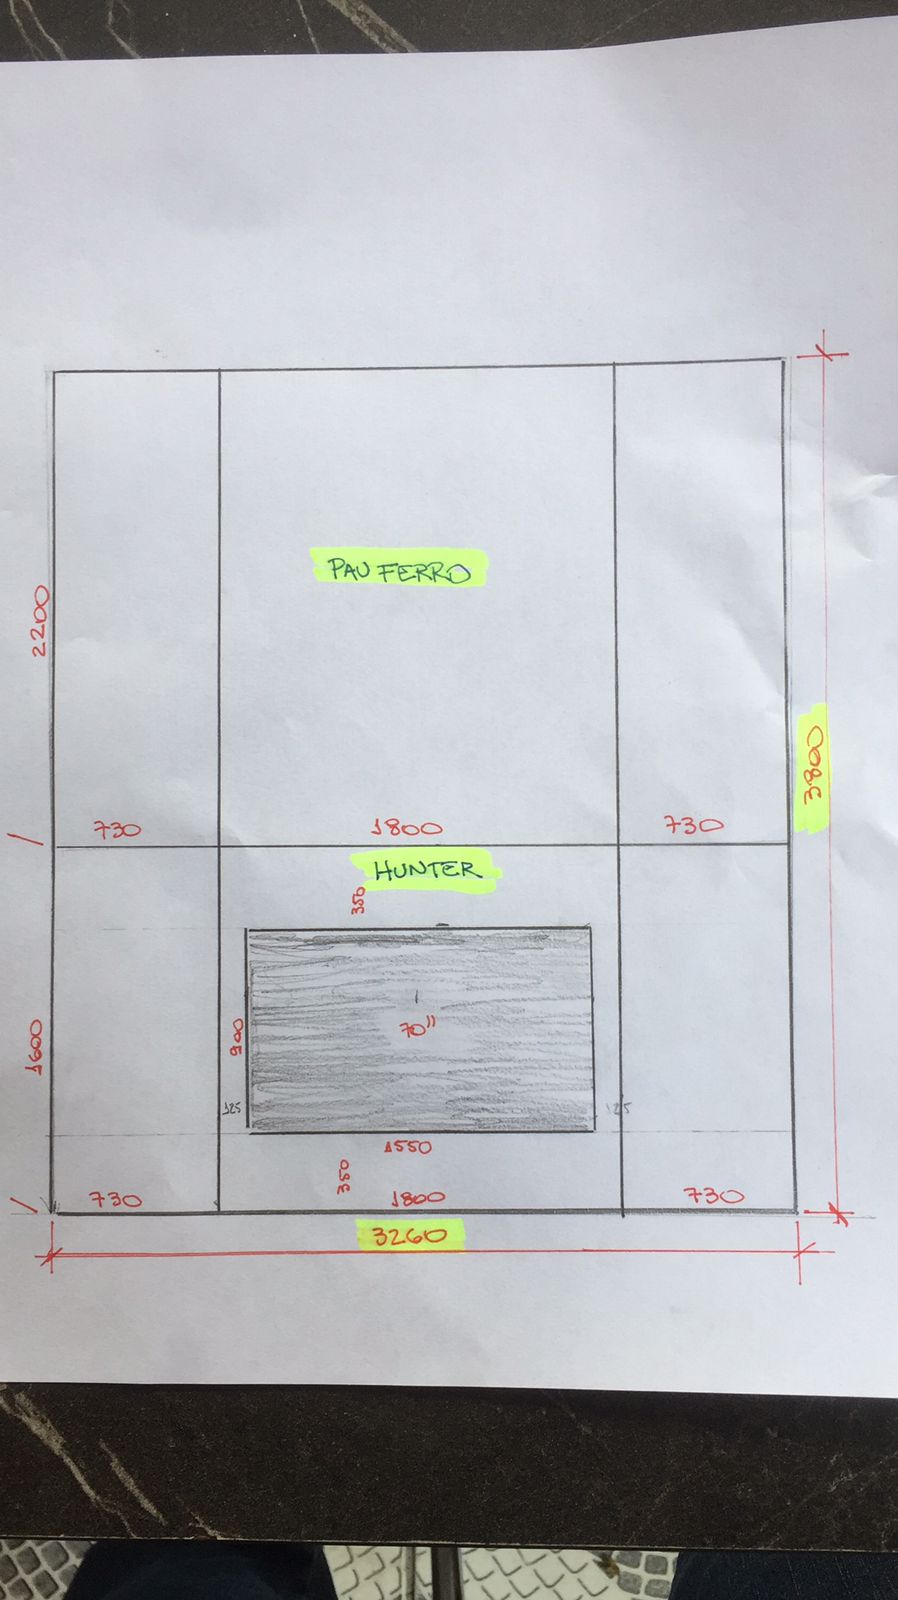 PAU FERRO
2200
3800
730
1800
730
HUNTER
350
900
70"
1600
125
125
1550
350
730
1800
730
3260